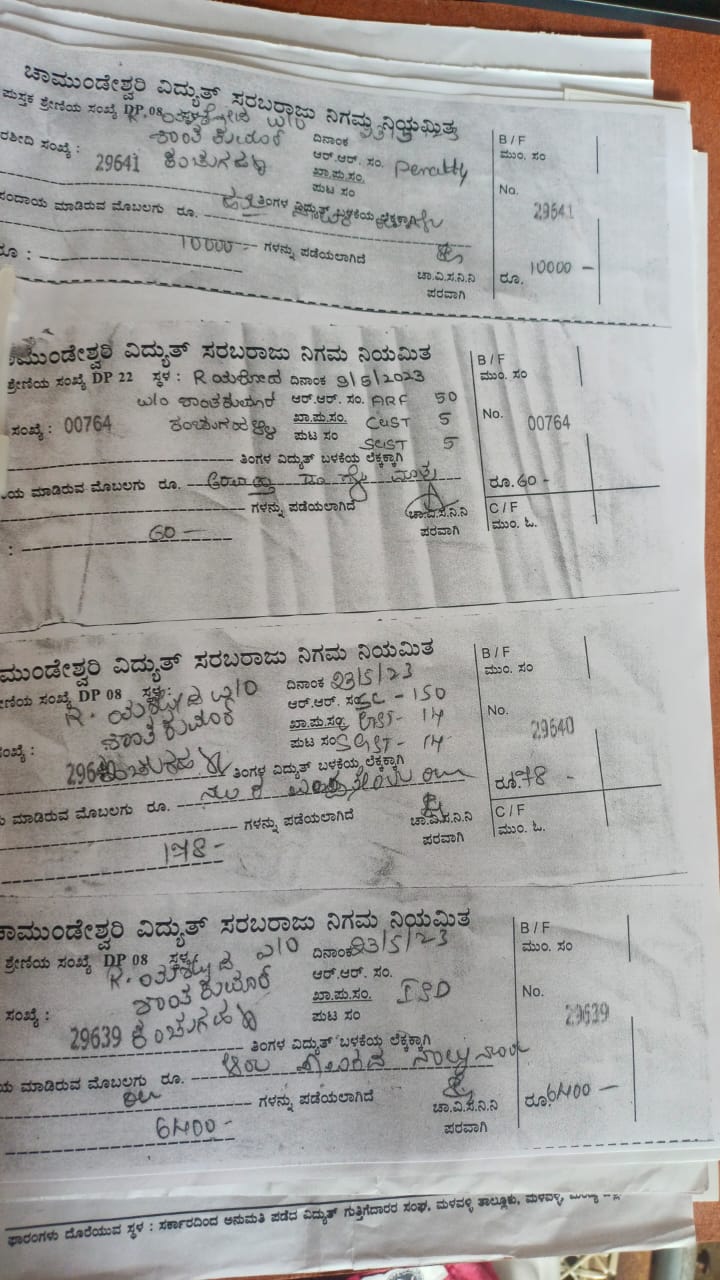 ಚಾಮುಂಡೇಶ್ವರಿ ವಿದ್ಯುತ್ ಸರಬರಾಜು ನಿಗಮ ನಿಯಮಿತ
ಪುಸ್ತಕ ಶ್ರೇಣಿಯ ಸಂಖ್ಯೆ DP 08 ಸ್ಥಳ W/O ದಿನಾಂಕ
ಶಾಂತಕುಮಾರ ಆರ್.ಆರ್. ಸಂ. Penalty
ರಶೀದಿ ಸಂಖ್ಯೆ : 29641 ಕಂಚುಗಹಳ್ಳಿ ಖಾ.ಪು.ಸಂ.
ಪುಟ ಸಂ
ತಿಂಗಳ ವಿದ್ಯುತ್ ಬಳಕೆಯ ಲೆಕ್ಕಕ್ಕಾಗಿ
ಸಂದಾಯ ಮಾಡಿರುವ ಮೊಬಲಗು ರೂ.
ಗಳನ್ನು ಪಡೆಯಲಾಗಿದೆ
ರೂ : 10000 - ಚಾ.ವಿ.ಸ.ನಿ.ನಿ
ಪರವಾಗಿ
B / F
ಮುಂ. ಸಂ
No.
29641
ರೂ. 10000 -
ಚಾಮುಂಡೇಶ್ವರಿ ವಿದ್ಯುತ್ ಸರಬರಾಜು ನಿಗಮ ನಿಯಮಿತ
ಶ್ರೇಣಿಯ ಸಂಖ್ಯೆ DP 22 ಸ್ಥಳ : R ಯಶೋದ ದಿನಾಂಕ 9/5/2023
W/O ಶಾಂತಕುಮಾರ ಆರ್.ಆರ್. ಸಂ. ARF 50
ಸಂಖ್ಯೆ : 00764 ಕಂಚುಗಹಳ್ಳಿ ಖಾ.ಪು.ಸಂ. CGST 5
ಪುಟ ಸಂ SGST 5
ತಿಂಗಳ ವಿದ್ಯುತ್ ಬಳಕೆಯ ಲೆಕ್ಕಕ್ಕಾಗಿ
ಯ ಮಾಡಿರುವ ಮೊಬಲಗು ರೂ. ಅರವತ್ತು ರೂ ಮಾತ್ರ
ಗಳನ್ನು ಪಡೆಯಲಾಗಿದೆ ಚಾ.ವಿ.ಸ.ನಿ.ನಿ
: 60 - ಪರವಾಗಿ
B / F
ಮುಂ. ಸಂ
No. 00764
ರೂ. 60 -
C / F
ಮುಂ. ಓ.
ಮುಂಡೇಶ್ವರಿ ವಿದ್ಯುತ್ ಸರಬರಾಜು ನಿಗಮ ನಿಯಮಿತ
ಶ್ರೇಣಿಯ ಸಂಖ್ಯೆ DP 08 ಸ್ಥಳ : W/O ದಿನಾಂಕ 23/5/23
ಶಾಂತಕುಮಾರ ಆರ್.ಆರ್. ಸಂ. - 150
ಖಾ.ಪು.ಸಂ. - 14
ಸಂಖ್ಯೆ : 29640 ಕಂಚುಗಹಳ್ಳಿ ಪುಟ ಸಂ SGST - 14
ತಿಂಗಳ ವಿದ್ಯುತ್ ಬಳಕೆಯ ಲೆಕ್ಕಕ್ಕಾಗಿ
ಮಾಡಿರುವ ಮೊಬಲಗು ರೂ.
ಗಳನ್ನು ಪಡೆಯಲಾಗಿದೆ ಚಾ.ವಿ.ಸ.ನಿ.ನಿ
178 - ಪರವಾಗಿ
B / F
ಮುಂ. ಸಂ
No.
29640
ರೂ. 178 -
C / F
ಮುಂ. ಓ.
ಚಾಮುಂಡೇಶ್ವರಿ ವಿದ್ಯುತ್ ಸರಬರಾಜು ನಿಗಮ ನಿಯಮಿತ
ಶ್ರೇಣಿಯ ಸಂಖ್ಯೆ DP 08 ಸ್ಥಳ W/O ದಿನಾಂಕ 23/5/23
ಶಾಂತಕುಮಾರ ಆರ್.ಆರ್. ಸಂ.
ಸಂಖ್ಯೆ : 29639 ಕಂಚುಗಹಳ್ಳಿ ಖಾ.ಪು.ಸಂ. ISD
ಪುಟ ಸಂ
ತಿಂಗಳ ವಿದ್ಯುತ್ ಬಳಕೆಯ ಲೆಕ್ಕಕ್ಕಾಗಿ
ಯ ಮಾಡಿರುವ ಮೊಬಲಗು ರೂ. ಆರು ಸಾವಿರದ ನಾಲ್ಕುನೂರು
ರೂ ಗಳನ್ನು ಪಡೆಯಲಾಗಿದೆ ಚಾ.ವಿ.ಸ.ನಿ.ನಿ
6400 - ಪರವಾಗಿ
B / F
ಮುಂ. ಸಂ
No.
29639
ರೂ. 6400 -
ಫಾರಂಗಳು ದೊರೆಯುವ ಸ್ಥಳ : ಸರ್ಕಾರದಿಂದ ಅನುಮತಿ ಪಡೆದ ವಿದ್ಯುತ್ ಗುತ್ತಿಗೆದಾರರ ಸಂಘ, ಮಳವಳ್ಳಿ ತಾಲ್ಲೂಕು, ಮಳವಳ್ಳಿ,